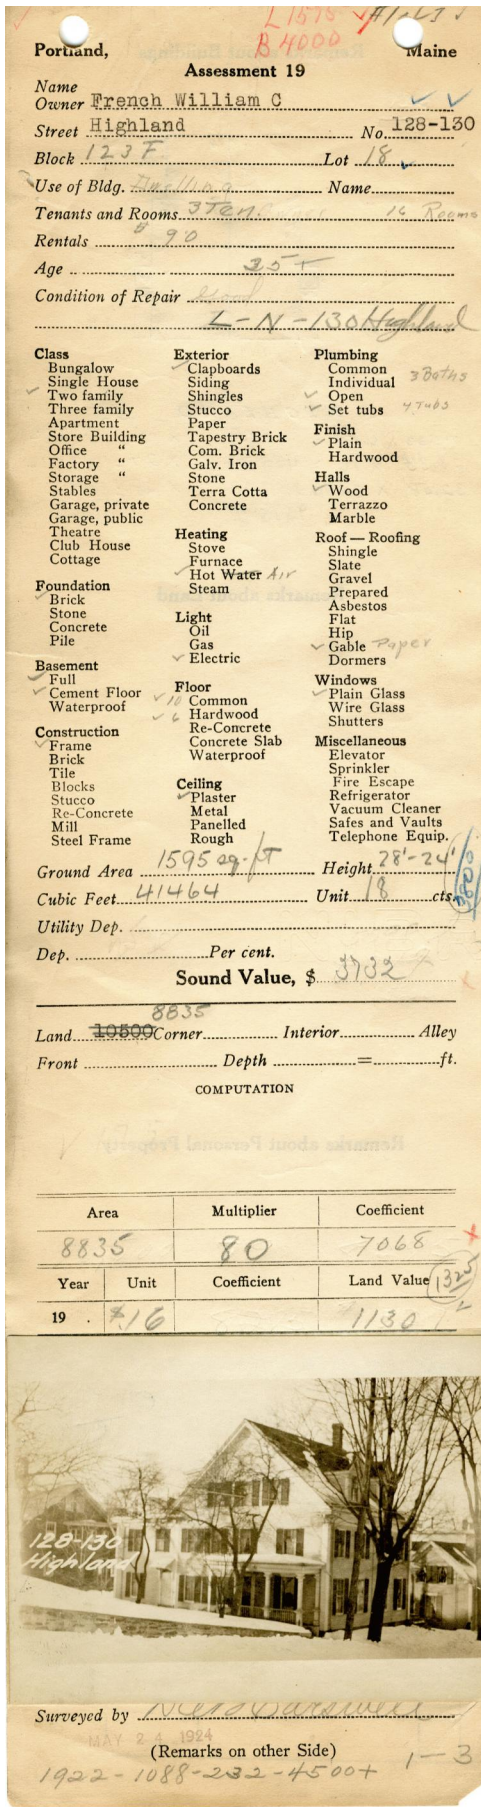 L 1575
B 4000
Portland, Maine
Assessment 19
Name
Owner French William C
Street Highland No. 128-130
Block 123 F Lot 18
Use of Bldg. Dwelling Name
Tenants and Rooms 3 Ten. 16 Rooms
Rentals $ 90
Age 35+
Condition of Repair Good
L-N-130 Highland
Class
Bungalow
Single House
✓ Two family
Three family
Apartment
Store Building
Office "
Factory "
Storage "
Stables
Garage, private
Garage, public
Theatre
Club House
Cottage
Foundation
✓ Brick
Stone
Concrete
Pile
Basement
✓ Full
✓ Cement Floor
Waterproof
Construction
✓ Frame
Brick
Tile
Blocks
Stucco
Re-Concrete
Mill
Steel Frame
Exterior
✓ Clapboards
Siding
Shingles
Stucco
Paper
Tapestry Brick
Com. Brick
Galv. Iron
Stone
Terra Cotta
Concrete
Heating
Stove
Furnace
✓ Hot Water Air
Steam
Light
Oil
Gas
✓ Electric
Floor
✓ 10 Common
✓ 6 Hardwood
Re-Concrete
Concrete Slab
Waterproof
Ceiling
✓ Plaster
Metal
Panelled
Rough
Plumbing
Common
Individual 3 Baths
✓ Open
✓ Set tubs 4 Tubs
Finish
✓ Plain
Hardwood
Halls
✓ Wood
Terrazzo
Marble
Roof — Roofing
Shingle
Slate
Gravel
Prepared
Asbestos
Flat
Hip
✓ Gable Paper
Dormers
Windows
✓ Plain Glass
Wire Glass
Shutters
Miscellaneous
Elevator
Sprinkler
Fire Escape
Refrigerator
Vacuum Cleaner
Safes and Vaults
Telephone Equip.
Ground Area 1595 sq. ft Height 28'-24'
Cubic Feet 41464 Unit 18 cts.
Utility Dep.
Dep. Per cent.
Sound Value, $ 3732
8835
Land 10500 Corner Interior Alley
Front Depth = ft.
COMPUTATION
Area Multiplier Coefficient
8835 80 7068
Year Unit Coefficient Land Value 1325
19 . $.16 1130
128-130
Highland
Surveyed by
MAY 24 1924
(Remarks on other Side)
1922-1088-232-4500+ 1-3